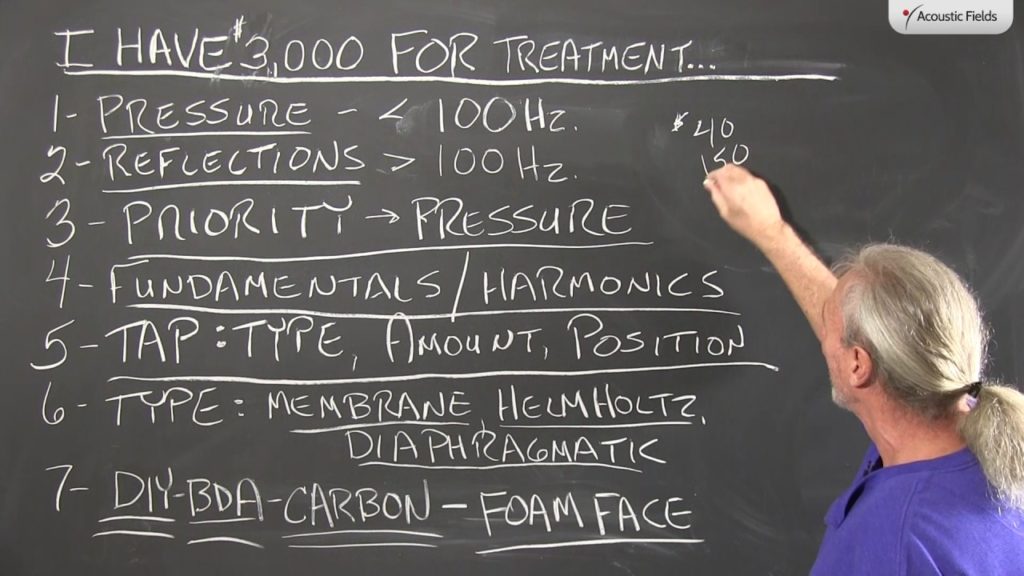 Acoustic Fields
I HAVE $3,000 FOR TREATMENT...
1- PRESSURE - < 100 Hz.
2- REFLECTIONS > 100 Hz.
$ 40
150
3- PRIORITY → PRESSURE
4- FUNDAMENTALS / HARMONICS
5- TAP: TYPE, AMOUNT, POSITION
6- TYPE: MEMBRANE, HELMHOLTZ,
DIAPHRAGMATIC
7- DIY-BDA-CARBON - FOAM FACE